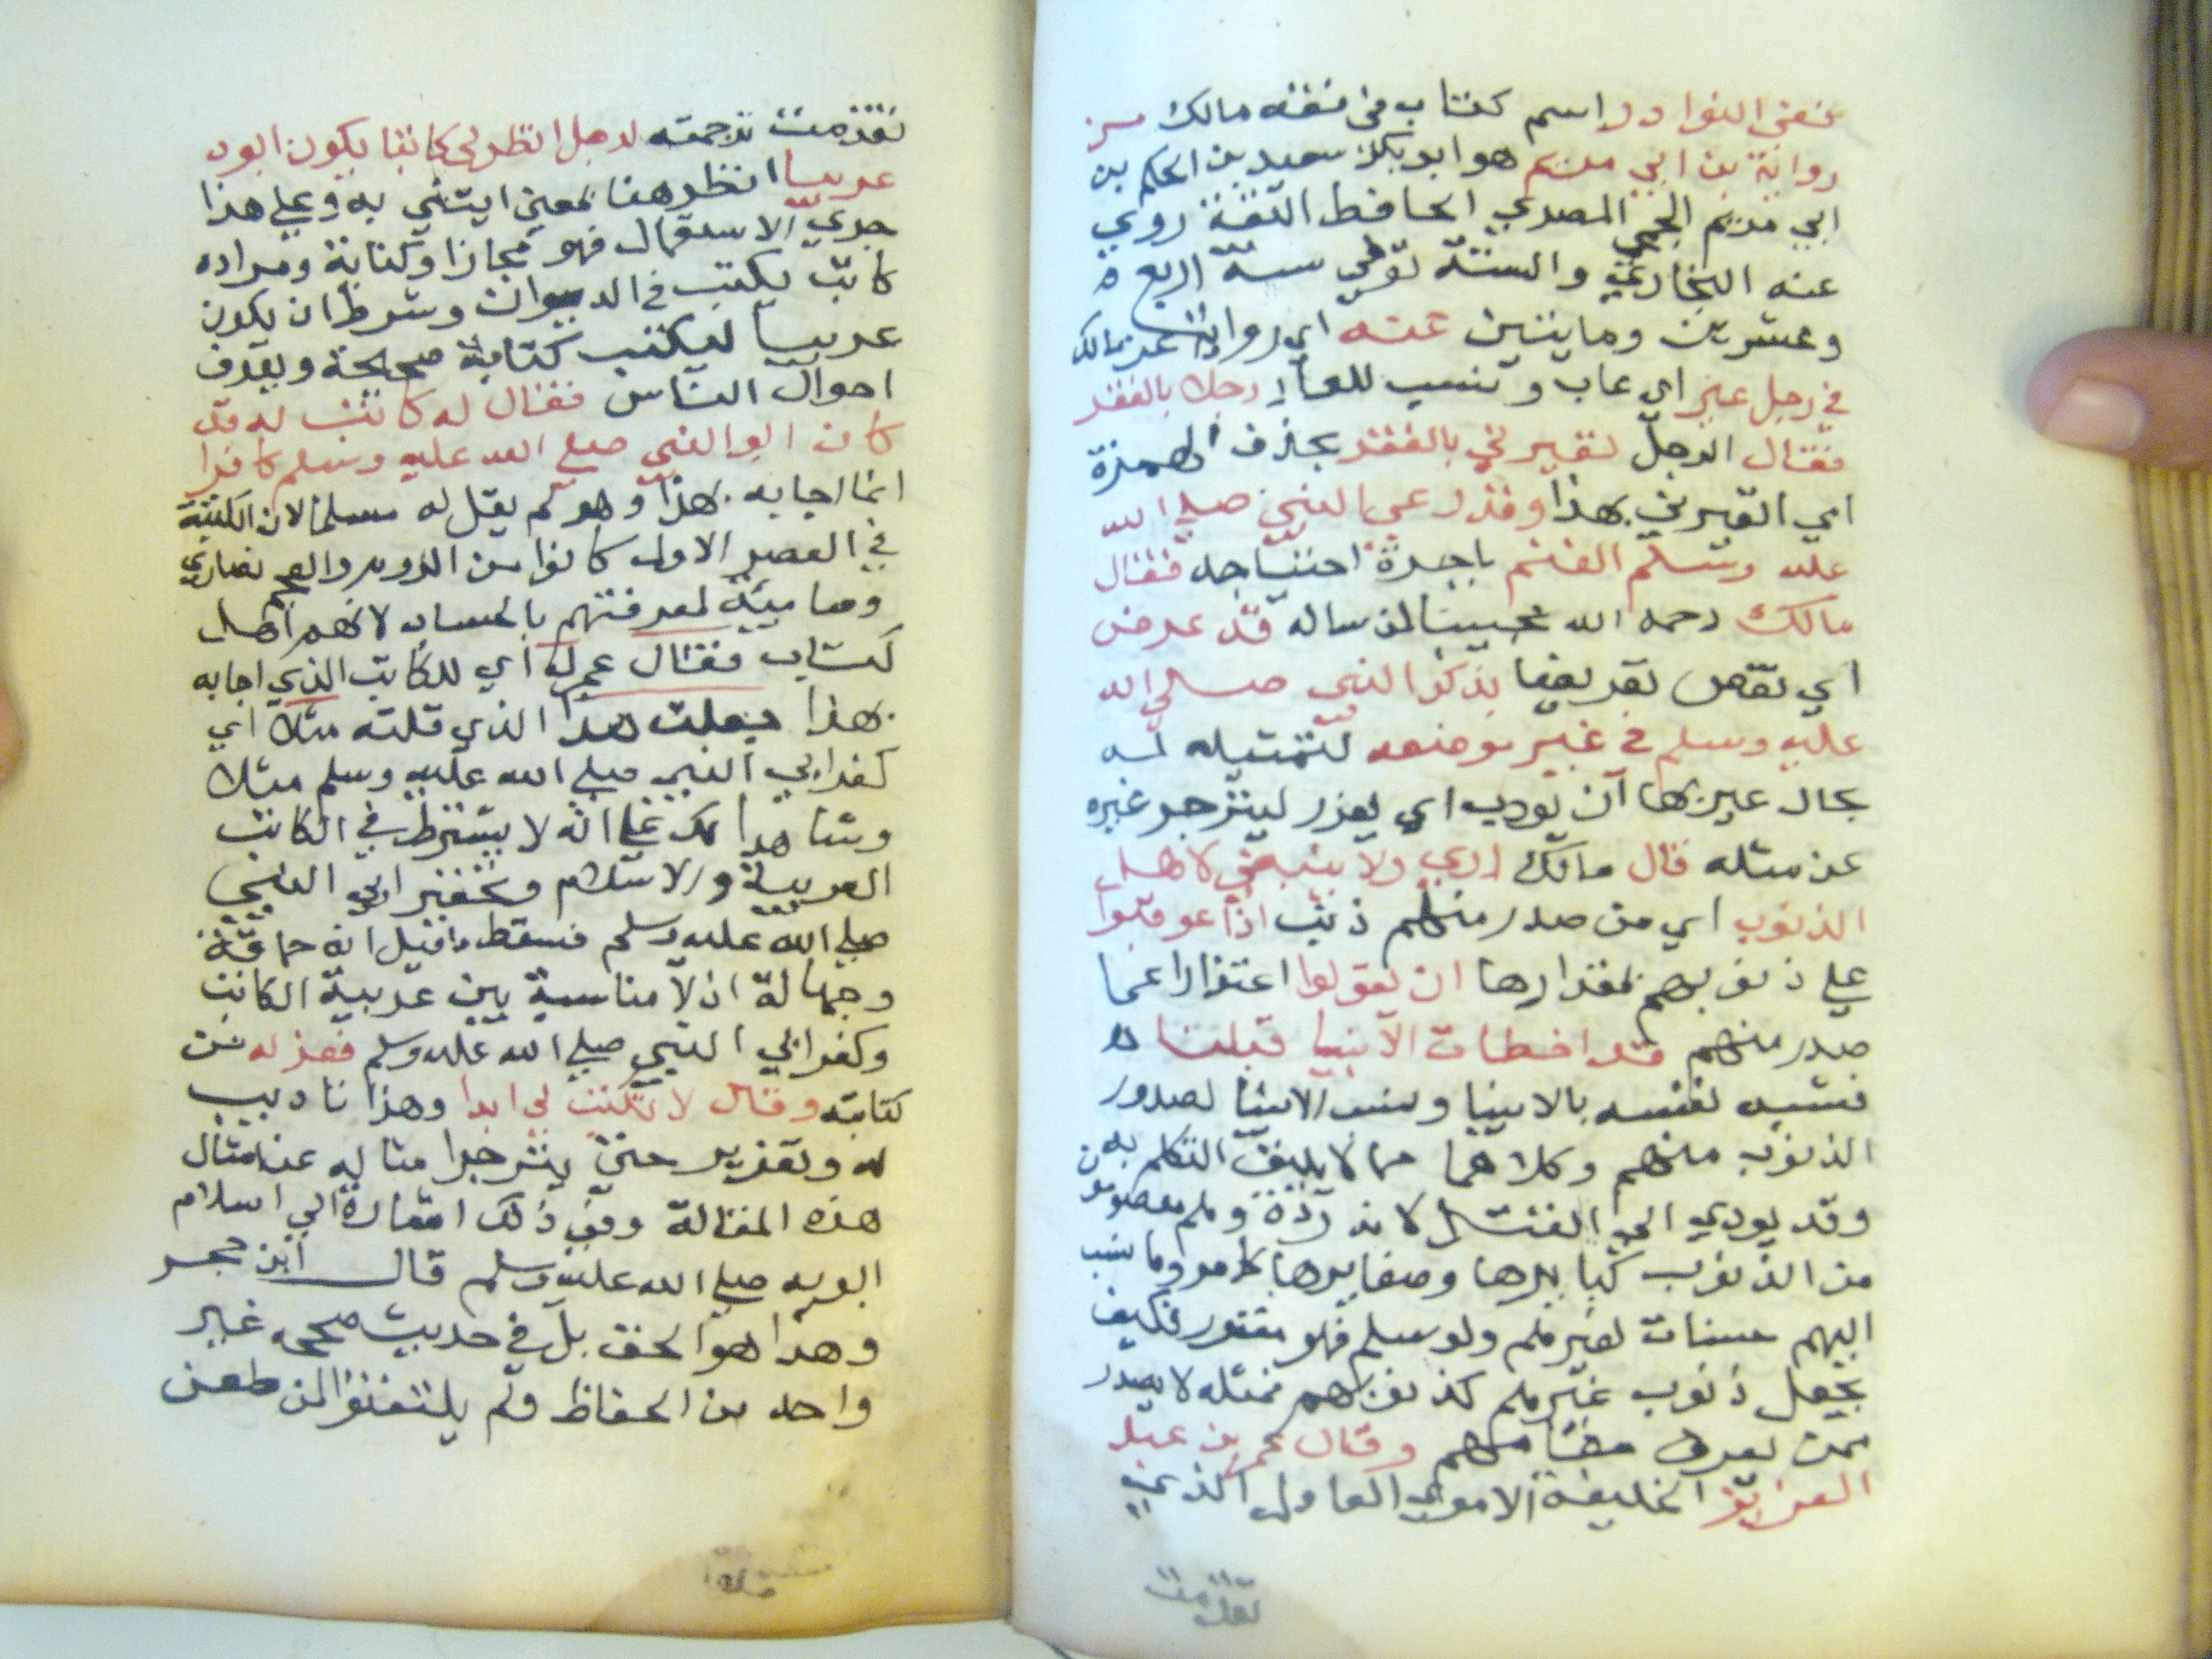 ففي النوادر اسم كتاب في فقه مالك من
رواية بن ابي مريم هو ابو بكر سعيد بن الحكم بن
ابي مريم الجمحي المصري الحافظ الثقة روي
عنه البخاري والستة توفي سنة اربع
وعشرين ومايتين عنه اي رواية عن مالك
في رجل عير اي عاب ونسب للعار رجلا بالفقر
فقال الرجل تعيرني بالفقر بحذف الهمزة
اي اتعيرني بهذا وقد رعي النبي صلي الله
عليه وسلم الغنم باجرة احتياجه فقال
مالك رحمه الله مجيبا لمن ساله قد عرض
اي نقص تعريضا بذكر النبي صلي الله
عليه وسلم في غير موضعه لتمثيله له
بحال عير بها ان يودب اي يعزر لينزجر غيره
عن مثله قال مالك اري ولا ينبغي لاهل
الذنوب اي من صدر منهم ذنب اذا عوقبوا
علي ذنوبهم بمقدارها ان يقولوا اعتذارا عما
صدر منهم قد اخطات الانبيا قبلنا
فشبه نفسه بالانبيا ونسب الانبيا لصدور
الذنوب منهم وكلاهما مما لا يليق التكلم به
وقد يودي الي القتل لانه ردة وهم معصومون
من الذنوب كبايرها وصغايرها كما مر وما نسب
اليهم حسنات لغيرهم ولو سلم فهو مغفور فكيف
يجعل ذنوب غيرهم كذنوبهم فمثله لا يصدر
ممن يعرف مقامهم وقال عمر بن عبد
العزيز الخليفة الاموي العادل الذي
تقدمت
تقدمت ترجمته لرجل انظر لي كاتبا يكون ابوه
عربيا انظر هنا بمعني ايتني به وعلي هذا
جري الاستعمال فهو مجاز او كناية ومراده
كاتب يكتب في الديوان وشرط ان يكون
عربيا ليكتب كتابة صحيحة ويعرف
احوال الناس فقال له كاتب له قد
كان ابو النبي صلي الله عليه وسلم كافرا
انما اجابه بهذا وهو لم يقل له مسلما لان الكتبة
في العصر الاول كانوا من الروم والعجم نصاري
وصابيئة لمعرفتهم بالحساب لانهم اهل
كتاب فقال عمر له اي للكاتب الذي اجابه
بهذا جعلت هذا الذي قلته مثلا اي
كفر ابي النبي صلي الله عليه وسلم مثلا
وشاهدا لك علي انه لا يشترط في الكاتب
العربية والاسلام وتحقير ابي النبي
صلي الله عليه وسلم فسقط ما قيل انه حماقة
وجهالة اذ لا مناسبة بين عربية الكاتب
وكفر ابي النبي صلي الله عليه وسلم فعزله عن
كتابته وقال لا تكتب لي ابدا وهذا تاديب
له وتعزير حتي ينزجر امثاله عن امثال
هذه المقالة وفي ذلك اشارة الي اسلام
ابويه صلي الله عليه وسلم قال ابن حجر
وهذا هو الحق بل في حديث صححه غير
واحد من الحفاظ ولم يلتفتوا لمن طعن